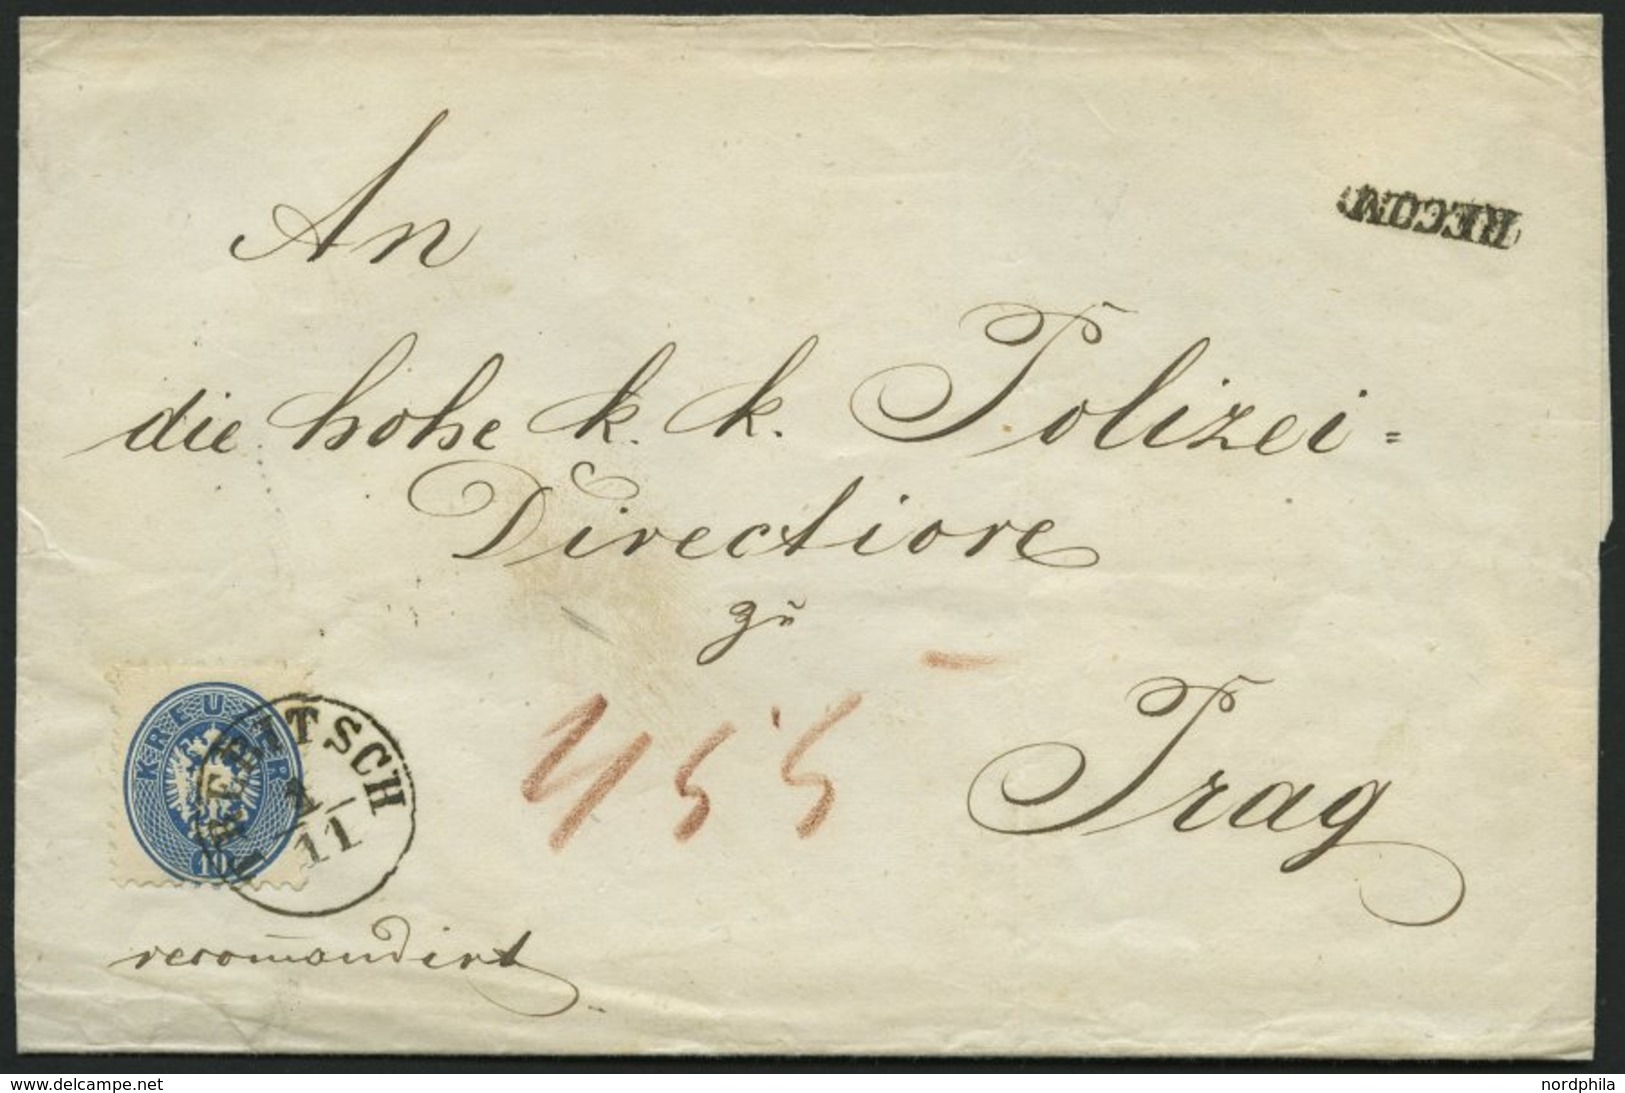 An
RECOM:
die hohe k. k. Polizei=
Directione
zu
Prag
455
KREUZER
10
TREBITSCH
11
recom̄andirt
www.delcampe.net
nordphila